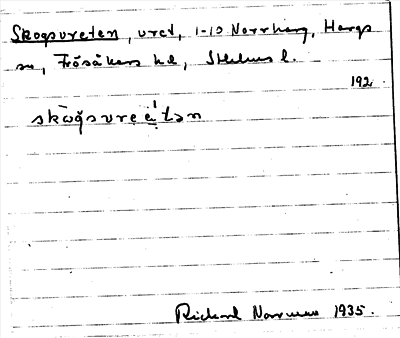 Skogsvreten, vret, 1-10 Norrharg, Hargs
sn, Frösåkers hd, Sthlms l.
192.
skògsvreé̩tən
Richard Norman 1935.